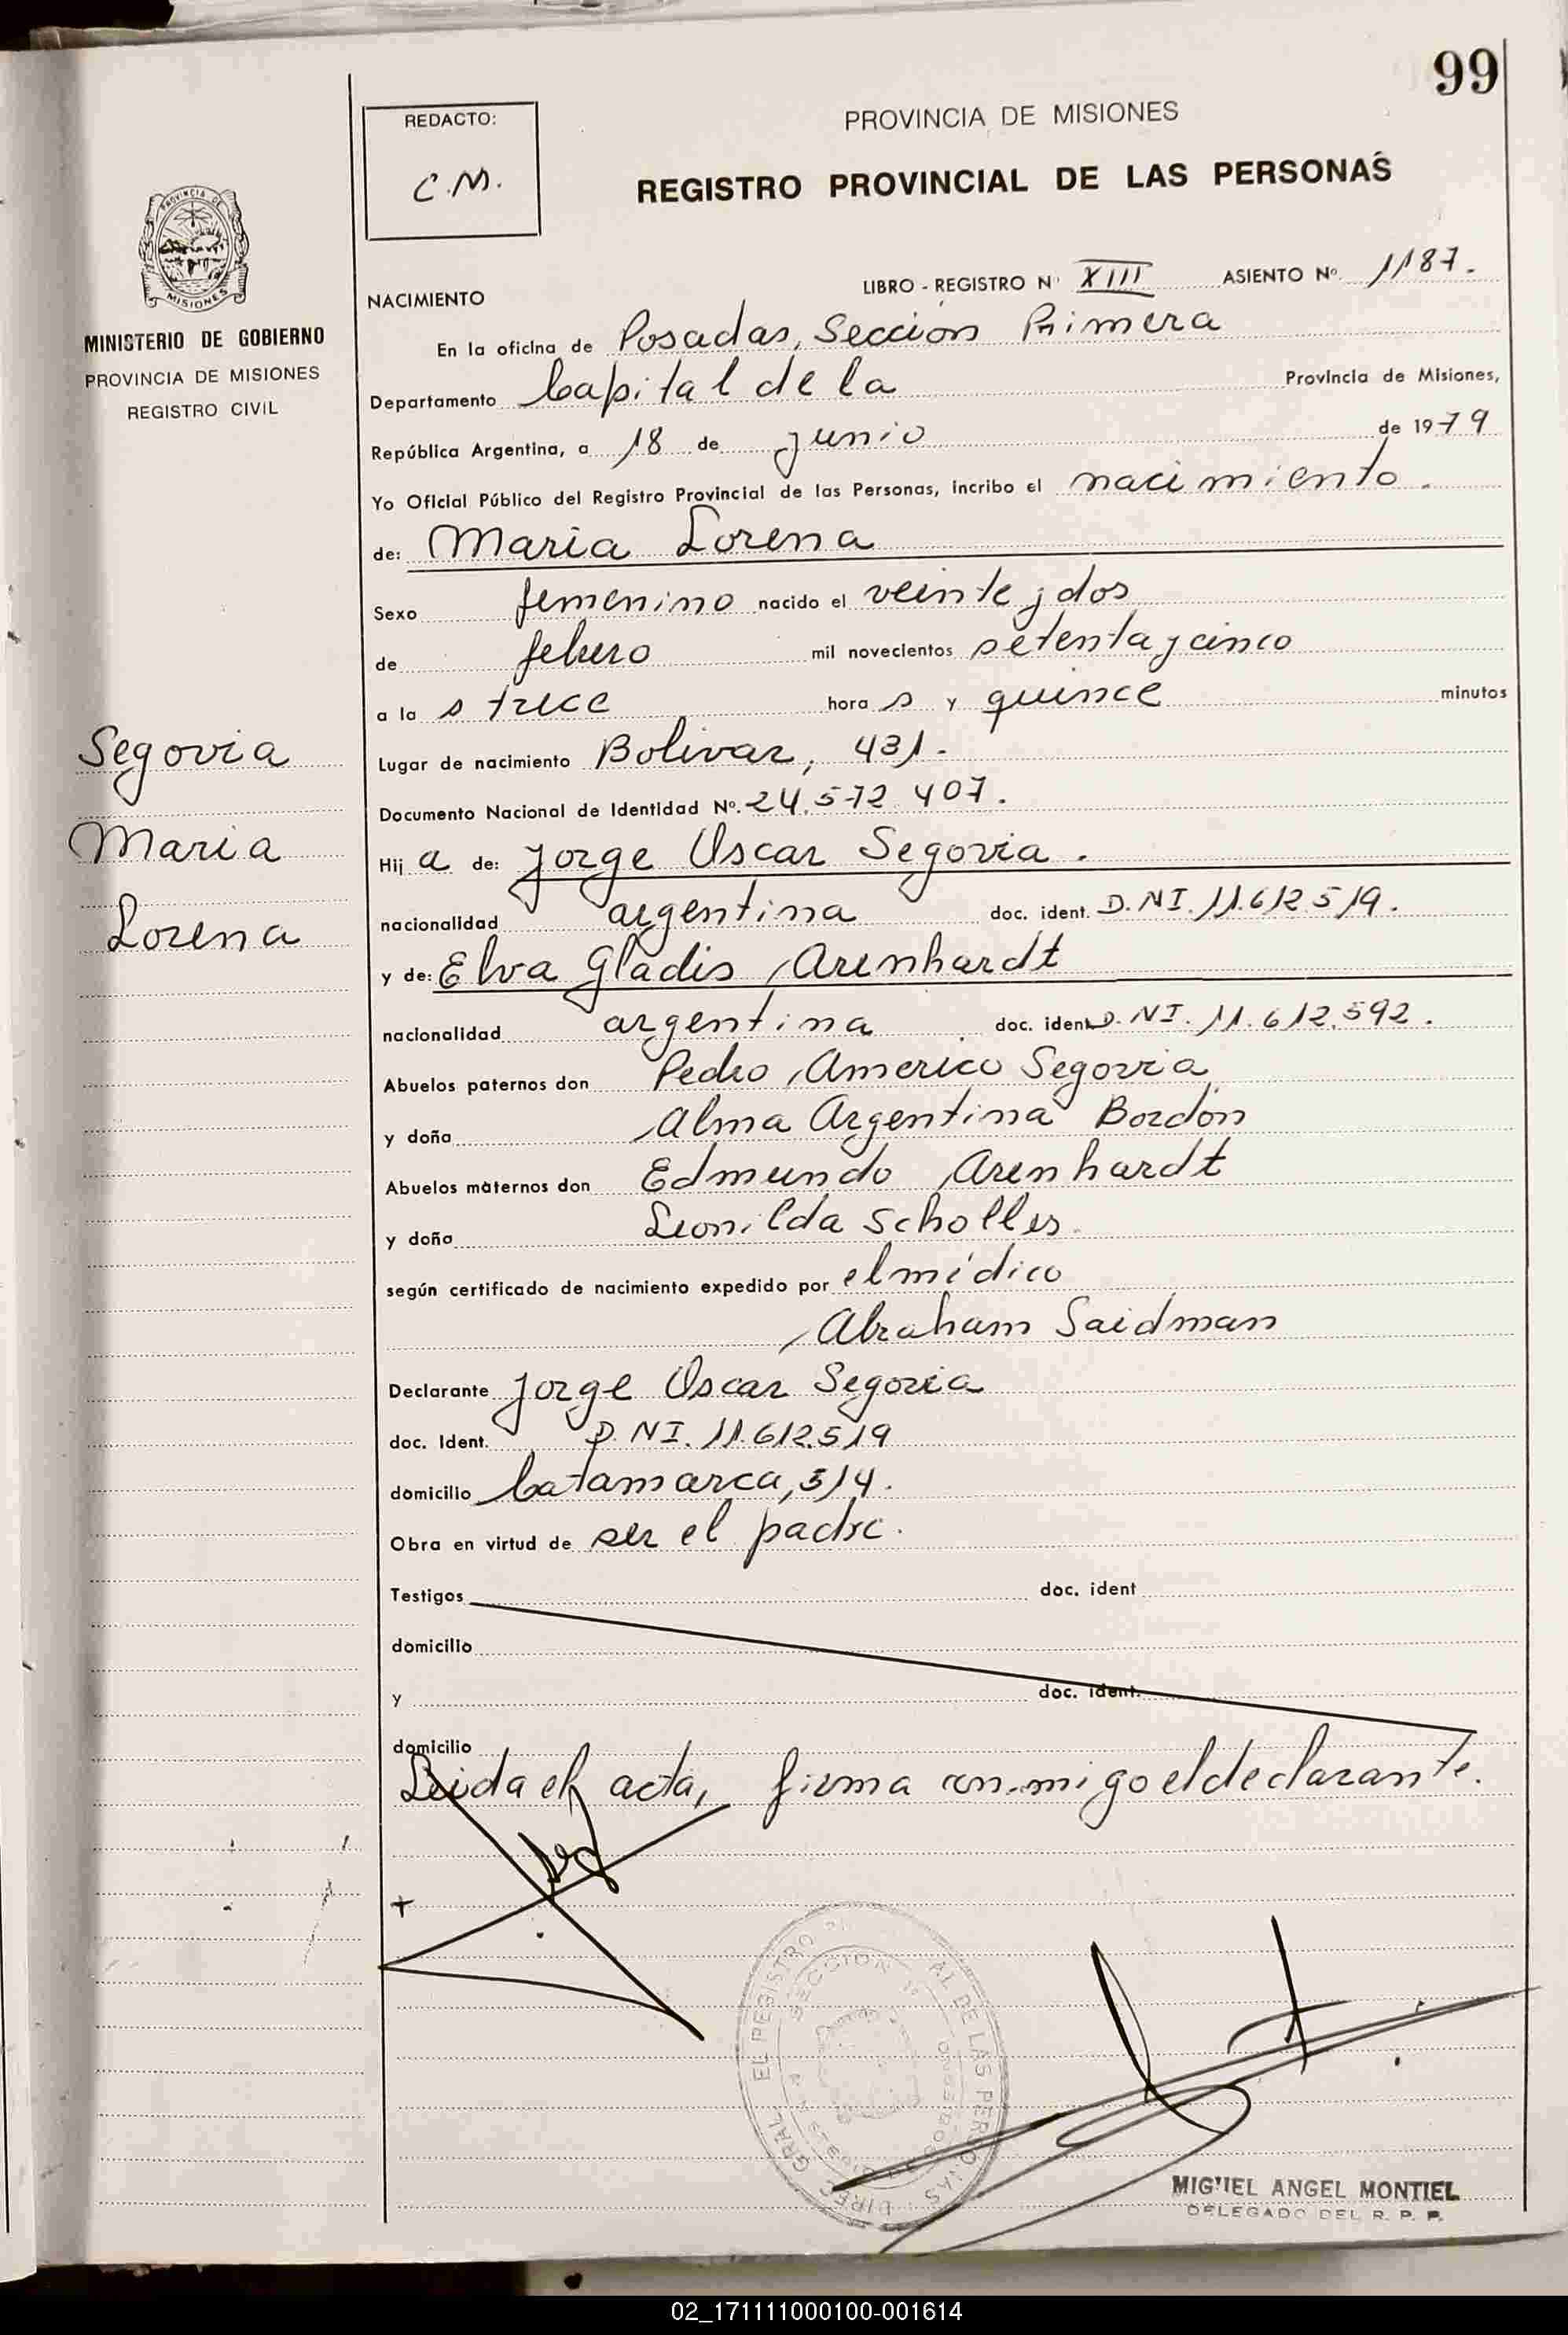 99
REDACTO:
C.M.
PROVINCIA DE MISIONES
REGISTRO PROVINCIAL DE LAS PERSONAS
PROVINCIA DE
MISIONES
MINISTERIO DE GOBIERNO
PROVINCIA DE MISIONES
REGISTRO CIVIL
LIBRO - REGISTRO Nº XIII ASIENTO Nº 1187.
NACIMIENTO
En la oficina de Posadas, Sección Primera
Departamento Capital de la Provincia de Misiones,
República Argentina, a 18 de junio de 1979
Yo Oficial Público del Registro Provincial de las Personas, incribo el nacimiento.
de: Maria Lorena
Sexo femenino nacido el veinte y dos
de febrero mil novecientos setenta y cinco
a la s trece hora s y quince minutos
Lugar de nacimiento Bolivar, 431.
Documento Nacional de Identidad Nº. 24.572.407.
Hij a de: Jorge Oscar Segovia.
nacionalidad argentina doc. ident. D.NI. 11.612.519.
y de: Elva Gladis Arenhardt
nacionalidad argentina doc. ident. D.NI. 11.612.592.
Abuelos paternos don Pedro Americo Segovia
y doña Alma Argentina Bordón
Abuelos maternos don Edmundo Arenhardt
y doña Leonilda Scholles.
según certificado de nacimiento expedido por el médico
Abraham Saidman
Declarante Jorge Oscar Segovia
doc. Ident. D.NI. 11.612.519
domicilio Catamarca, 514.
Obra en virtud de ser el padre.
Testigos doc. ident
domicilio
y doc. ident.
domicilio
Leida el acta, firma conmigo el declarante.
Segovia
Maria
Lorena
DIREC. GRAL. EL REGISTRO AL DE LAS PERSONAS
SECCION 1ª
MIGUEL ANGEL MONTIEL
DELEGADO DEL R. P. P.
02_171111000100-001614